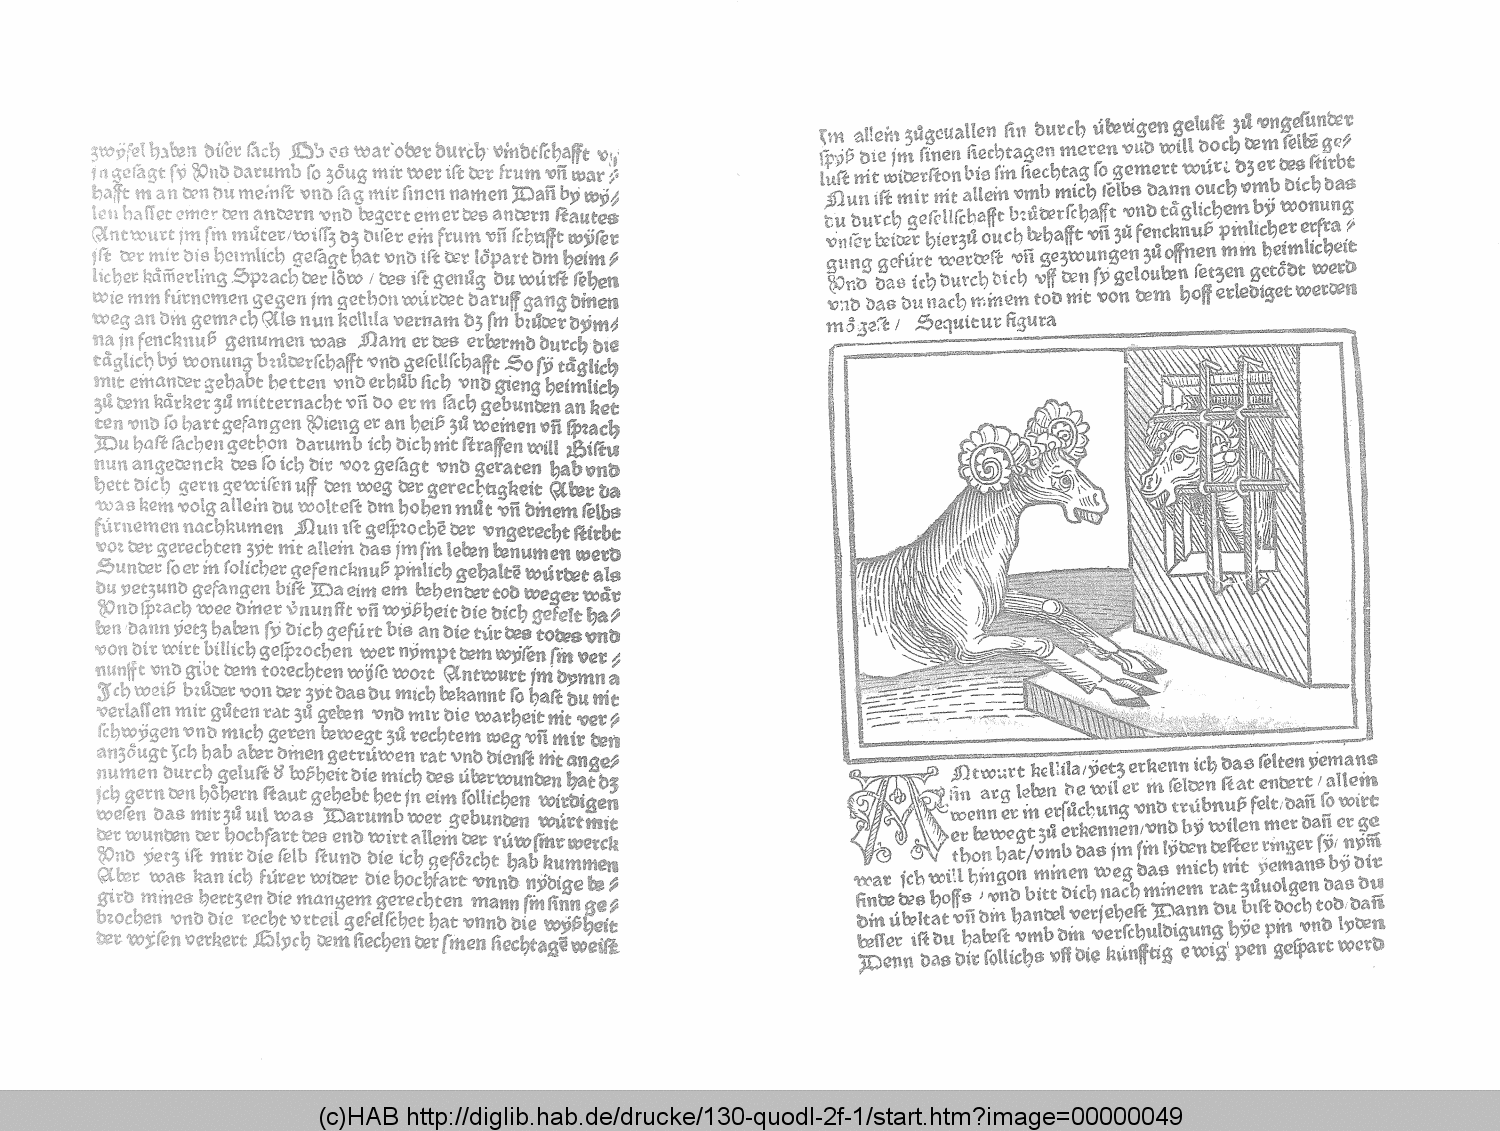 zwÿfel haben diser sach Ob es war oder durch vindtschafft v
in gesagt sÿ Vnd darumb so zöug mir wer ist der frum vn̄ war⸗
hafft man den du meinst vnd sag mir sinen namen Dan̄ by wÿ⸗
len hasset einer den andern vnd begert einer des andern stautes
Antwurt jm sin můter/wissz dz diser ein frum vn̄ schafft wÿser
ist der mir dis heimlich gesagt hat vnd ist der löpart din heim⸗
licher käm̄erling Sprach der löw / des ist genůg du würst sehen
wie min fürnemen gegen jm gethon würdet daruff gang dinen
weg an din gemach Als nun kellila vernam dz sin brůder dÿm⸗
na jn fencknuß genumen was Nam er des erbermd durch die
täglich bÿ wonung brüderschafft vnd gesellschafft So sÿ täglich
mit einander gehabt hetten vnd erhůb sich vnd gieng heimlich
zů dem kärker zů mitternacht vn̄ do er in sach gebunden an ket
ten vnd so hart gefangen Vieng er an heiß zů weinen vn̄ sprach
Du hast sachen gethon darumb ich dich nit straffen will Bistu
nun angedenck des so ich dir vor gesagt vnd geraten hab vnd
hett dich gern gewisen uff den weg der gerechtigkeit Aber da
was kein volg allein du woltest din hohen můt vn̄ dinem selbs
fürnemen nachkumen Nun ist gesprochē der vngerecht stirbt
vor der gerechten zÿt nit allein das jm sin leben benumen werd
Sunder so er in solicher gefencknuß pinlich gehaltē würdet als
du yetzund gefangen bist Da eim ein behender tod weger wär
Vnd sprach wee diner v̄nunfft vn̄ wÿßheit die dich gefelt ha⸗
ben dann ÿetz haben sÿ dich gefürt bis an die tür des todes vnd
von dir wirt billich gesprochen wer nÿmpt dem wÿsen sin ver⸗
nunfft vnd gibt dem torechten wÿse wort Antwurt jm dymna
Ich weiß brůder von der zÿt das du mich bekannt so hast du nit
verlassen mir gůten rat zů geben vnd mir die warheit nit ver⸗
schwÿgen vnd mich geren bewegt zů rechtem weg vn̄ mir den
anzöugt Ich hab aber dinen getrüwen rat vnd dienst nit ange⸗
numen durch gelust d̕ boßheit die mich des überwunden hat dz
ich gern den höhern staut gehebt het jn eim sollichen wirdigen
wesen das mir zů uil was Darumb wer gebunden würt mit
der wunden der hochfart des end wirt allein der rüw sinr werck
Vnd yetz ist mir die selb stund die ich geförcht hab kummen
Aber was kan ich fürer wider die hochfart vnnd nydige be⸗
gird mines hertzen die mangem gerechten mann sin sinn ge⸗
brochen vnd die recht vrteil gefelschet hat vnnd die wÿßheit
der wysen verkert Glych dem siechen der sinen siechtagē weist
Im allein zůgeuallen sin durch überigen gelust zů vngesunder
spÿß die jm sinen siechtagen meren vnd will doch dem selbē ge⸗
lust nit widerston bis sin siechtag so gemert würt dz er des stirbt
Nun ist mir nit allein vmb mich selbs dann ouch vmb dich das
du durch gesellschafft brüderschafft vnd täglichem bÿ wonung
vnser beider hierzů ouch behafft vn̄ zů fencknuß pinlicher erfra⸗
gung gefürt werdest vn̄ gezwungen zů offnen min heimlicheit
Vnd das ich durch dich vff den sÿ gelouben setzen getödt werd
vnd das du nach minem tod nit von dem hoff erlediget werden
mögest / Sequitur figura
Antwurt kellila/ÿetz erkenn ich das selten yemans
sin arg leben de wil er in selden stat endert / allein
wenn er in ersůchung vnd trübnuß felt/dan̄ so wirt
er bewegt zů erkennen/vnd bÿ wilen mer dan̄ er ge
thon hat/vmb das jm sin lÿden dester ringer sÿ/ nÿm̄
war ich will hingon minen weg das mich nit yemans bÿ dir
finde des hoffs / vnd bitt dich nach minem rat zůuolgen das du
din übeltat vn̄ din handel verjehest Dann du bist doch tod/dan̄
besser ist du habest vmb din verschuldigung hÿe pin vnd lyden
Denn das dir sollichs vff die künfftig ewig pen gespart werd
(c)HAB http://diglib.hab.de/drucke/130-quodl-2f-1/start.htm?image=00000049